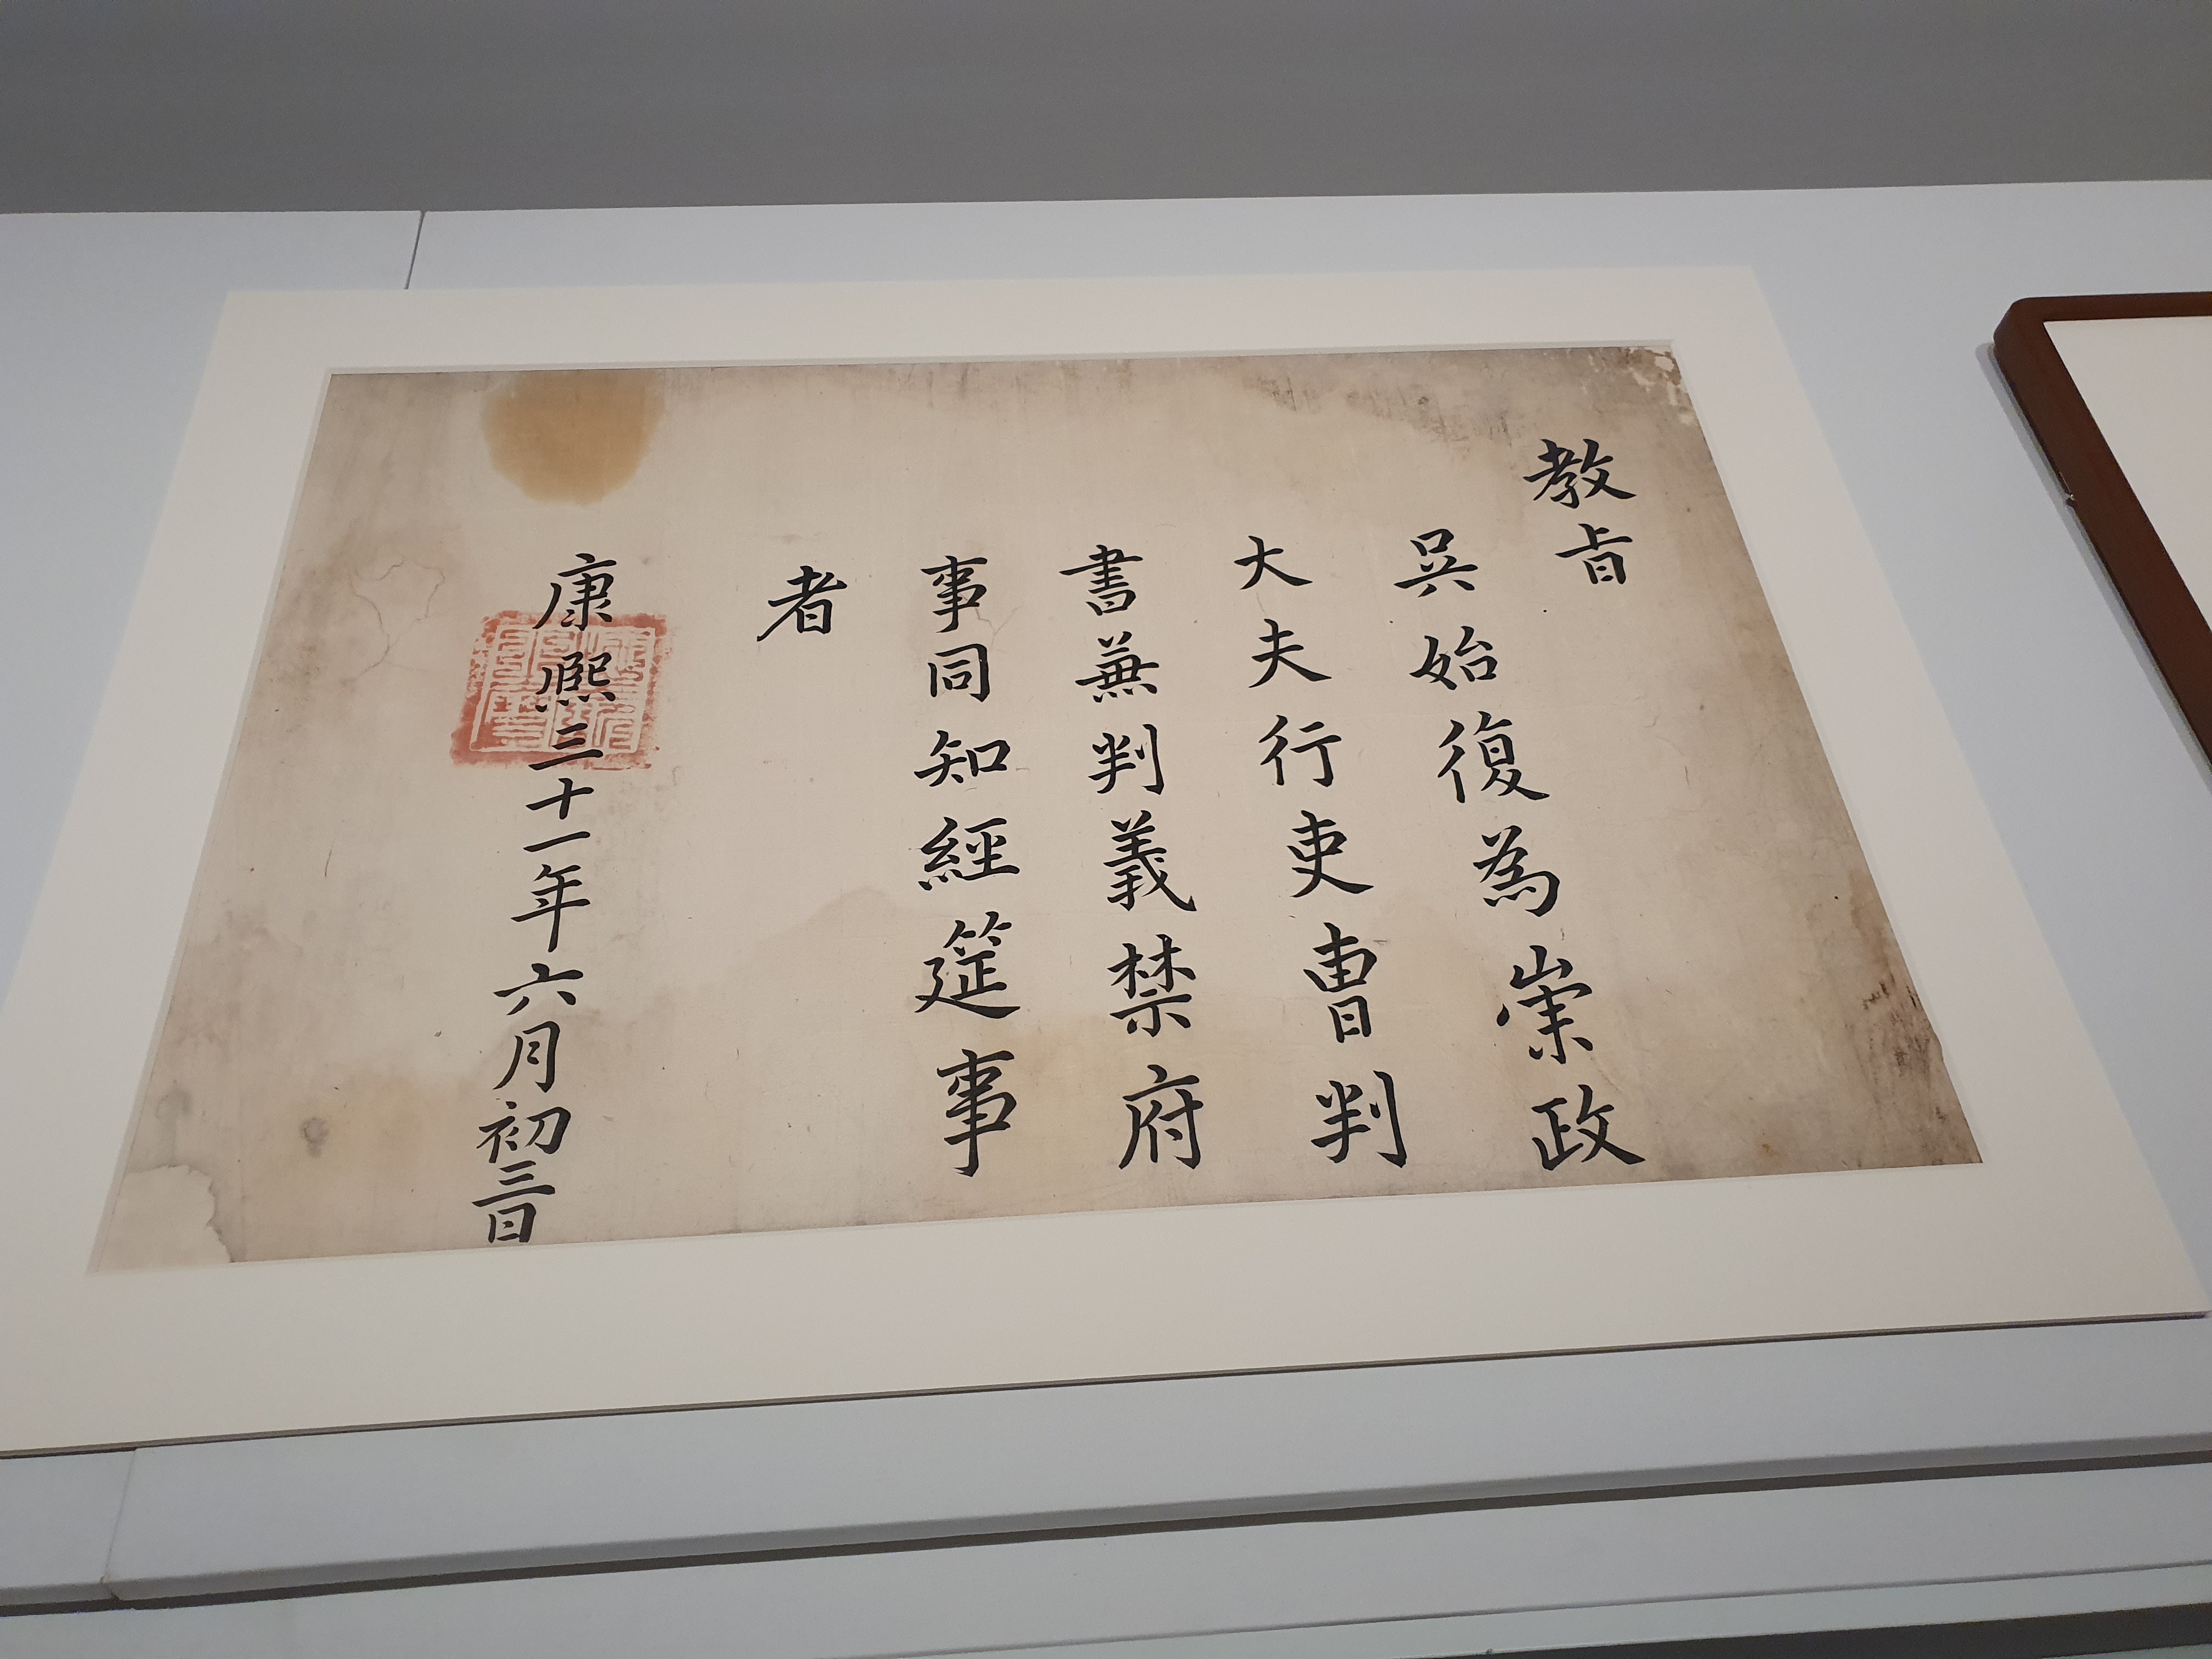 教旨
吳始復為崇政
大夫行吏曹判
書兼判義禁府
事同知經筵事
者
康熙三十一年六月初三日